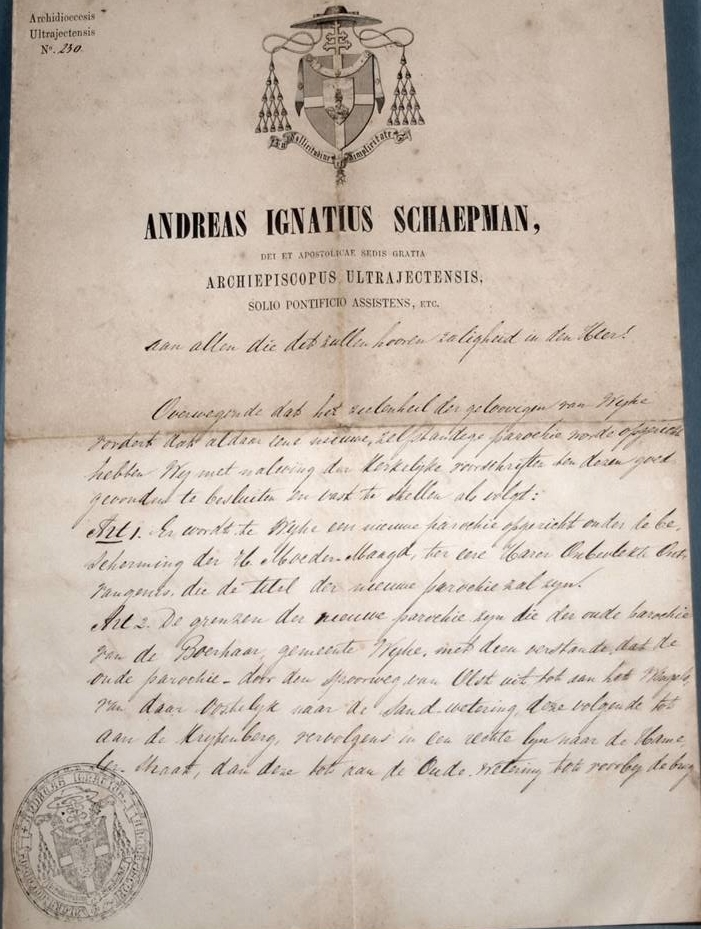 Archidioecesis
Ultrajectensis
No. 230.
ANDREAS IGNATIUS SCHAEPMAN,
DEI ET APOSTOLICAE SEDIS GRATIA
ARCHIEPISCOPUS ULTRAJECTENSIS,
SOLIO PONTIFICIO ASSISTENS, ETC.
aan allen die dit zullen hooren zaligheid in den Heer!
Overwegende dat het zielenheil der geloovigen van Wijhe
vordert dat aldaar eene nieuwe, zelfstandige parochie worde opgericht
hebben Wij met naleving der Kerkelijke voorschriften ten dezen goed
gevonden te besluiten en vast te stellen als volgt:
Art 1. Er wordt te Wijhe een nieuwe parochie opgericht onder de be-
scherming der H. Moeder-Maagd, ter eere Harer Onbevlekte Ont-
vangenis, die de titel der nieuwe parochie zal zijn.
Art 2. De grenzen der nieuwe parochie zijn die der oude parochie
van de Boerhaar, gemeente Wijhe, met dien verstande, dat de
oude parochie - door den spoorweg van Olst uit tot aan het
van daar Oostelijk naar de Sand-wetering, deze volgende tot
aan de Krijtenberg, vervolgens in een rechte lijn naar de
straat, dan deze tot aan de Oude-wetering tot voorbij de brug